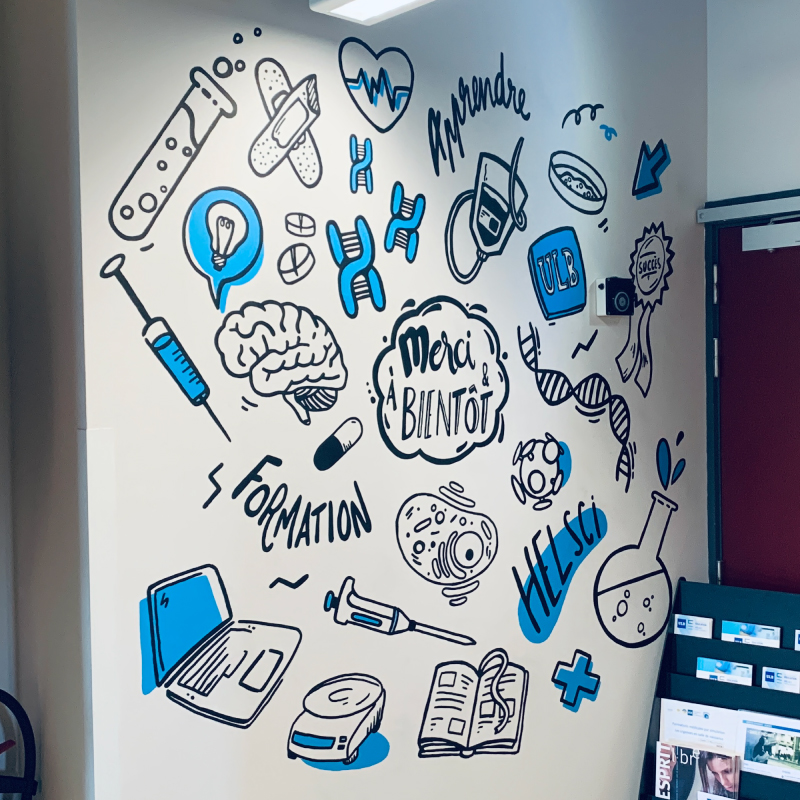 Apprendre
ULB
SUCCÈS
Merci
& À
BIENTÔT
FORMATION
HELSCI
ULB
ESPRIT